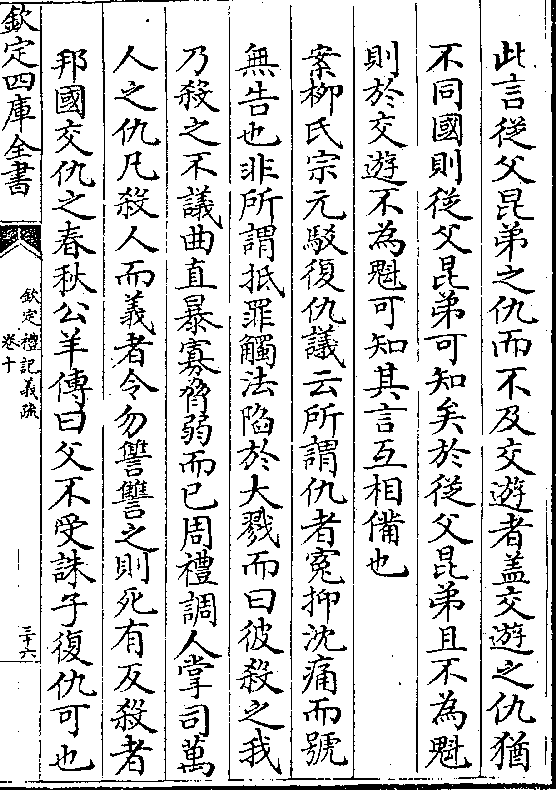 此言從父昆弟之仇而不及交遊者盖交遊之仇猶
不同國則從父昆弟可知矣於從父昆弟且不為魁
則於交遊不為魁可知其言互相備也
案柳氏宗元駁復仇議云所謂仇者寃抑沈痛而號
無告也非所謂抵罪觸法陷於大戮而曰彼殺之我
乃殺之不議曲直暴寡脅弱而已周禮調人掌司萬
人之仇凡殺人而義者令勿讐讐之則死有反殺者
邦國交仇之春秋公羊傳曰父不受誅子復仇可也
欽定四庫全書
欽定禮記義疏
卷十
三十六